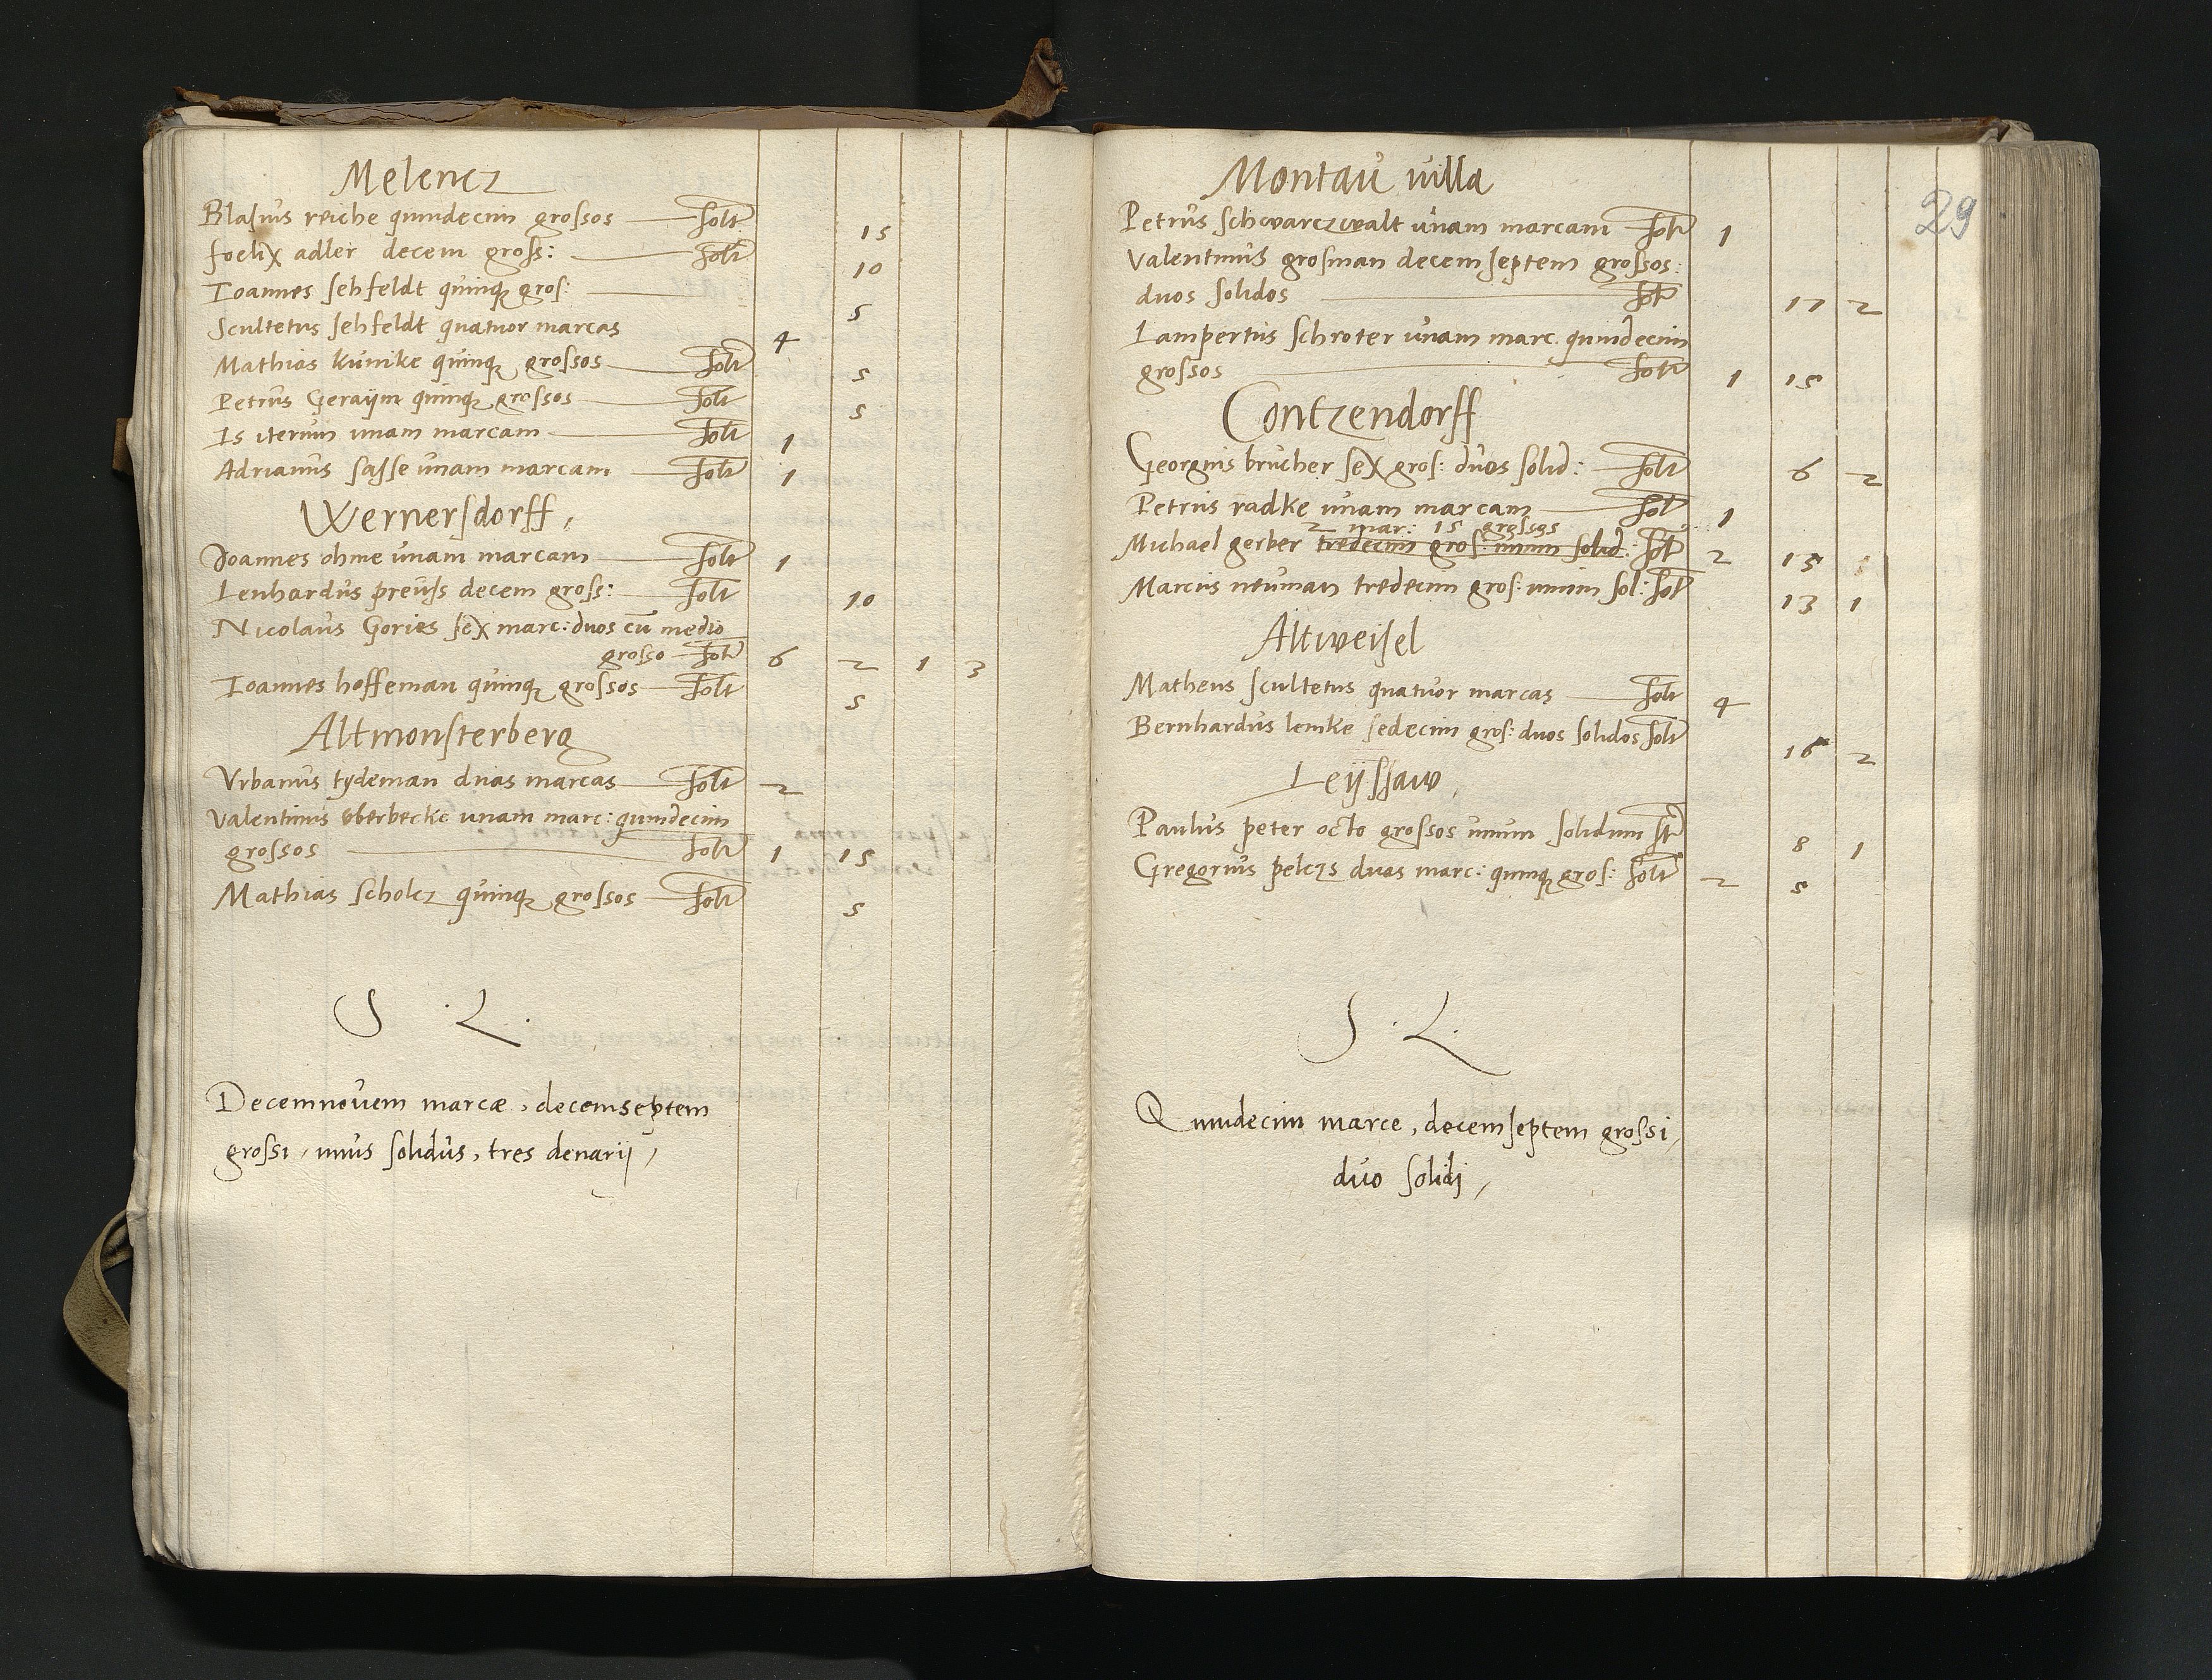 Melencz
Blasius reiche quindecim grossos solt 15
foelix adler decem gross: solt 10
Ioannes sehfeldt quinq gros: 5
Scultetus sehfeldt quatuor marcas 4
Mathias kunike quinq grossos solt 5
Petrus Geraÿm quinq grossos solt 5
Is iterum unam marcam solt 1
Adrianus sasse unam marcam solt 1
Wernersdorff,
Joannes ohme unam marcam solt 1
Lenhardus preüss decem gross: solt 10
Nicolaus Gories sex marc: duos cu medio
grosso solt 6 2 1 3
Ioannes hoffeman quinq grossos solt 5
Altmonsterberg
Vrbanus tydeman duas marcas solt 2
Valentinus oberbecke unam marc: quindecim
grossos solt 1 15
Mathias scholcz quinq grossos solt 5
S . L .
Decemnouem marcæ, decemseptem
grossi, unus solidus, tres denarij,
29
Montau uilla
Petrus schwarczwalt unam marcam solt 1
Valentinus grosman decemseptem grossos:
duos solidos solt 17 2
Lampertus schroter unam marc. quindecim
grossos solt 1 15
Contzendorff
Georgius brucher sex gros: duos solid: solt 6 2
Petrus radke unam marcam solt 1
2 mar: 15 grossos
Michael gerber tredecim gros: unum solid: solt 2 15
Marcus neuman tredecim gros: unum sol: solt 13 1
Altweisel
Matheus scultetus quatuor marcas solt 4
Bernhardus lemke sedecim gros: duos solidos solt 16 2
Leÿssaw,
Paulus peter octo grossos unum solidum slt 8 1
Gregorius pelczs duas marc: quinq gros: solt 2 5
S . L .
Quindecim marce, decemseptem grossi,
duo solidi,